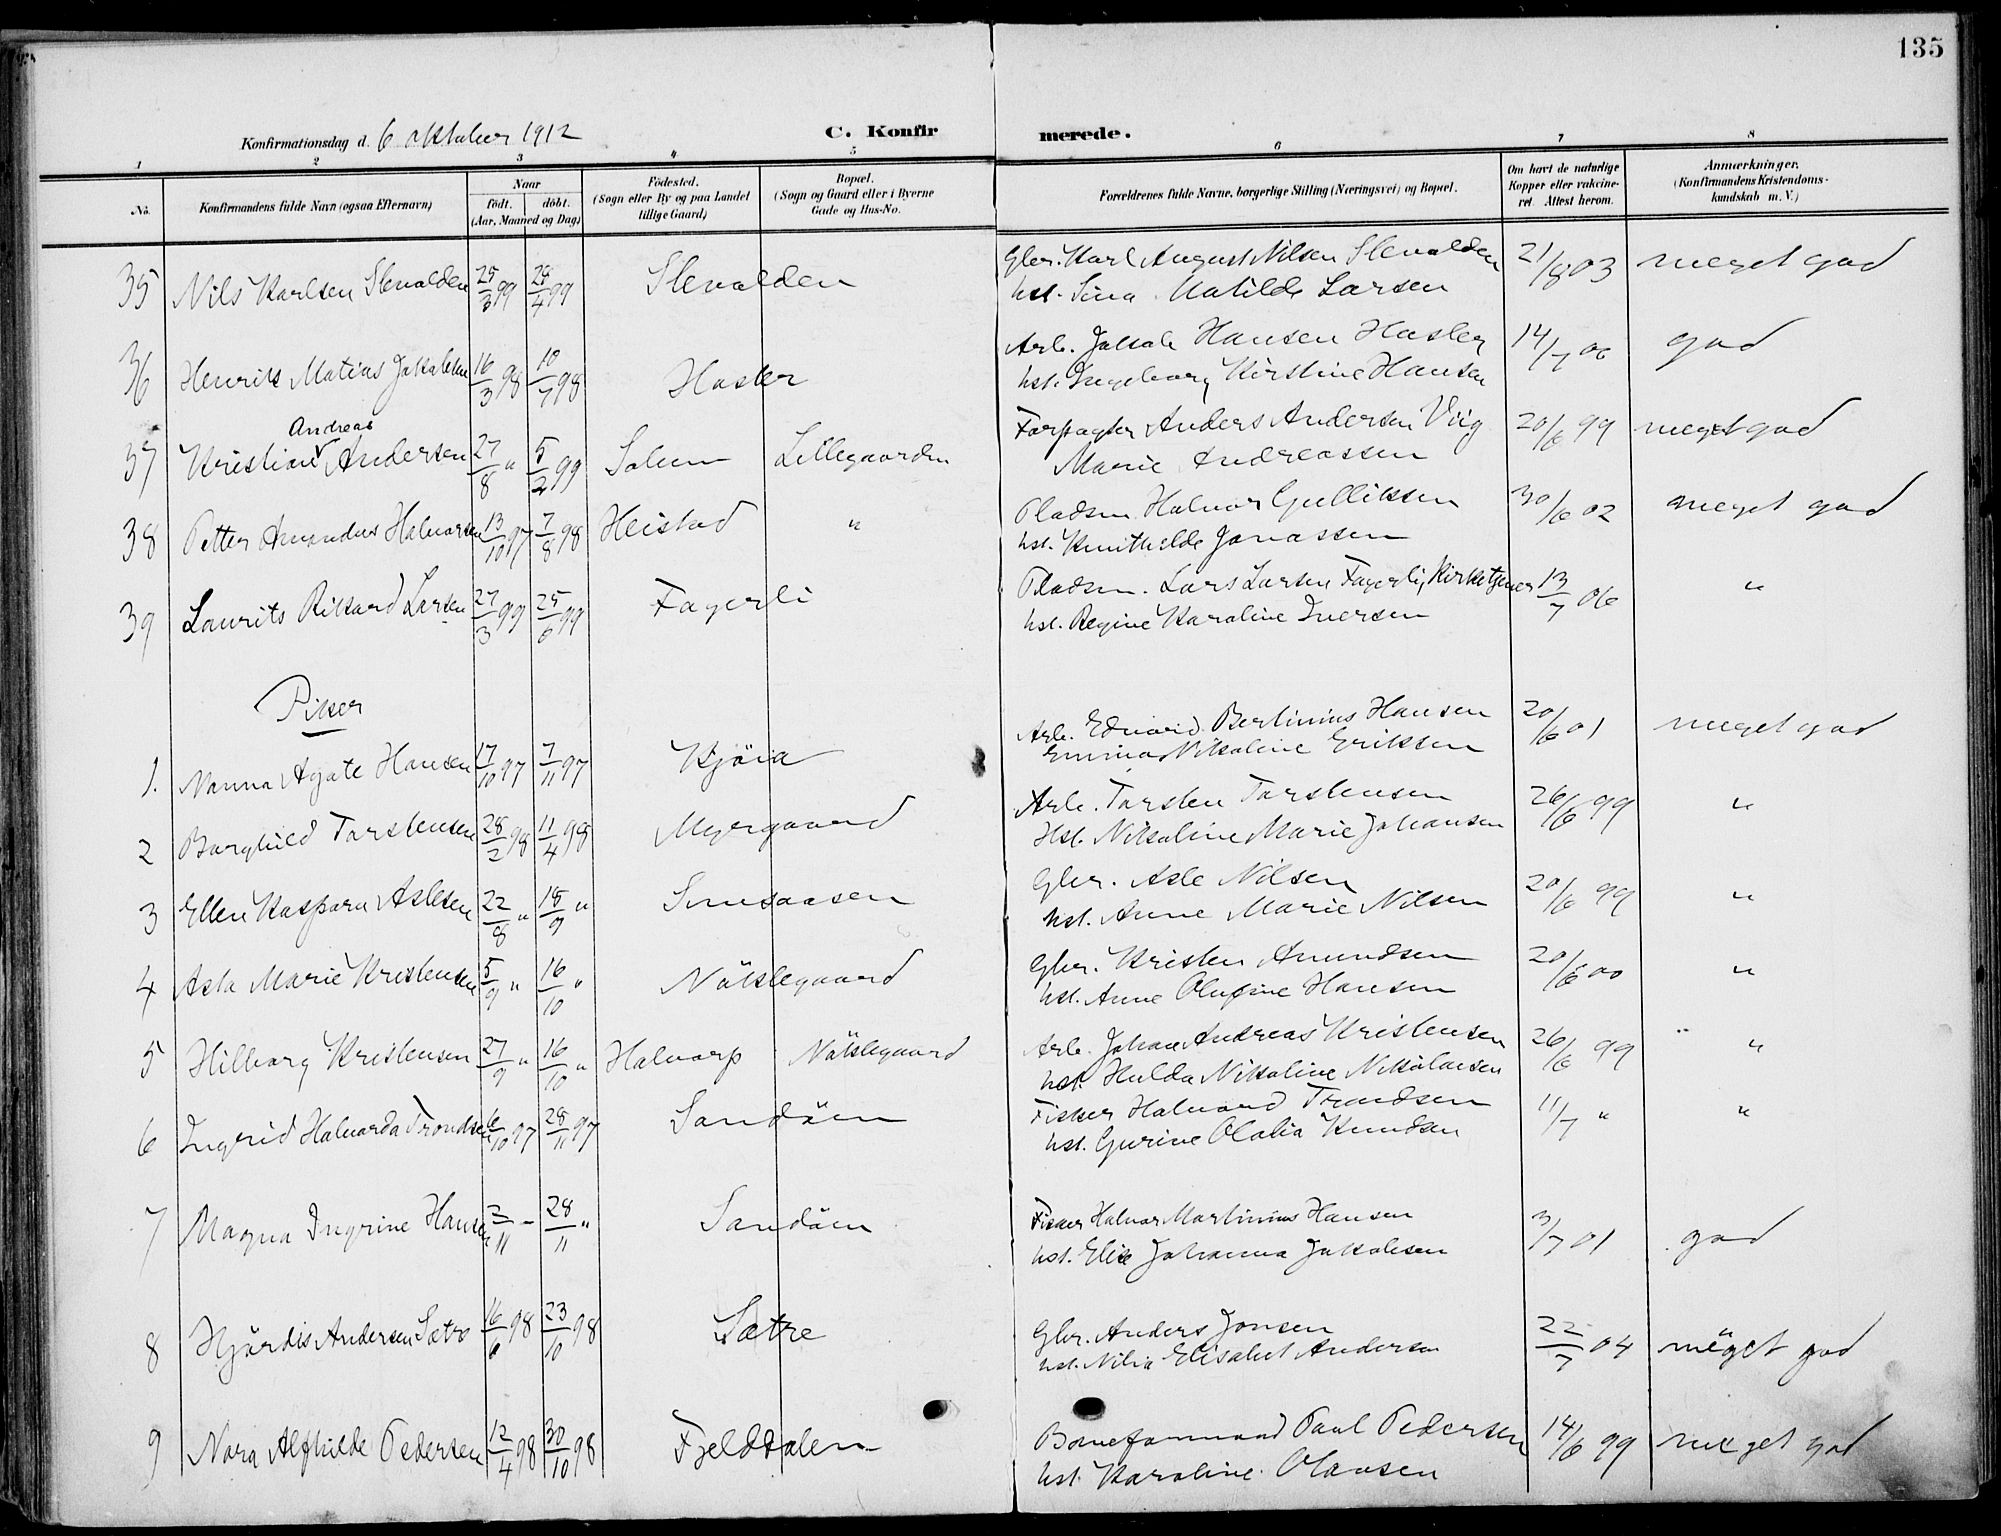 135
Konfirmationsdag d. 6 oktober 1912
C. Konfirmerede.
1 2 3 4 5 6 7 8
No.
Konfirmandens fulde Navn (ogsaa Efternavn)
Naar
födt. döbt.
(Aar, Maaned og Dag)
Födested.
(Sogn eller By og paa Landet
tillige Gaard)
Bopæl.
(Sogn og Gaard eller i Byerne
Gade og Hus-No.
Forældrenes fulde Navne, borgerlige Stilling (Næringsvei) og Bopæl.
Om havt de naturlige
Kopper eller vakcine-
ret. Attest herom.
Anmærkninger.
(Konfirmandens Kristendoms-
kundskab m. V.)
35 Nils Karlsen Slevolden 25/3 99 28/4 99 Slevolden Gbr. Karl August Nilsen Slevolden 21/8 03 meget god
hst. Sina Matilde Larsen
36 Henrik Matias Jakobsen 16/3 98 10/7 98 Hasler Arb. Jakob Hansen Hasler 14/7 00 god
hst. Ingeborg Kirstine Hansen
Andreas
37 Kristian Andersen 27/8 " 5/2 99 Solum Lillegaarden Forpagter Anders Andersen Viig 20/6 99 meget god
Marie Andreassen
38 Petter Amandus Halvorsen 13/10 97 7/8 98 Heistad " Pladsm. Halvor Gulliksen 30/6 02 meget god
hst. Knuthilde Jonassen
39 Laurits Rikard Larsen 27/3 99 25/6 99 Fagerli Pladsm. Lars Larsen Fagerli, Kirketjener 13/7 06 "
hst. Regine Karoline Iversen
Piker
1. Nanna Agate Hansen 17/10 97 7/11 97 Kjöia Arb. Edvard Bertinius Hansen 20/6 01 meget god
Emma Nikoline Eriksen
2 Borghild Torstensen 28/2 98 11/4 98 Myrgaard Arb. Torsten Torstensen 26/6 99 "
Hst. Nikoline Marie Johansen
3 Ellen Kaspara Aslesen 22/8 " 18/9 " Gbr. Asle Nilsen 20/6 99 "
hst. Anne Marie Nilsen
4 Asta Marie Kristensen 5/9 " 16/10 " Nötslegaard Gbr. Kristen Amundsen 20/6 00 "
hst. Anne Olufine Hansen
5 Hilborg Kristensen 27/9 " 16/10 " Halvarp Nötslegaard Arb. Johan Andreas Kristensen 26/6 99 "
hst. Hulda Nikoline Nikolaisen
6 Ingrid Halvarda Trondsen 6/10 97 28/11 97 Sandöen Fisker Halvard Trondsen 11/7 " "
hst. Gurine Olalia Knudsen
7 Magna Ingrine Hansen 2/11 - 28/11 " Sandöen Fisker Halvor Martinius Hansen 3/7 01 god
hst. Elise Johanna Jakobsen
8 Hjördis Andersen Sætre 16/6 98 23/10 98 Sætre Gbr. Anders Jonsen 22/7 04 meget god
hst. Nilia Elisabet Andersen
9 Nora Alfhilde Pedersen 12/4 98 30/10 98 Fjelddalen Baneformand Paul Pedersen 14/6 99 meget god
hst. Karoline Olausen